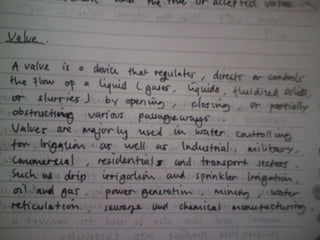 and the true or accepted value.
Valve.
A valve is a device that regulates, directs or controls
the flow of a liquid (gases, liquids, fluidised solids,
or slurries) by opening, closing, or partially
obstructing various passageways
Valves are majorly used in water controlling
for Irrigation as well as Industrial, military,
Commercial, residentials and transport sectors
such as drip irrigation and sprinkler irrigation,
oil and gas, power generation, mining, water
reticulation, sewage and chemical manufacturing.